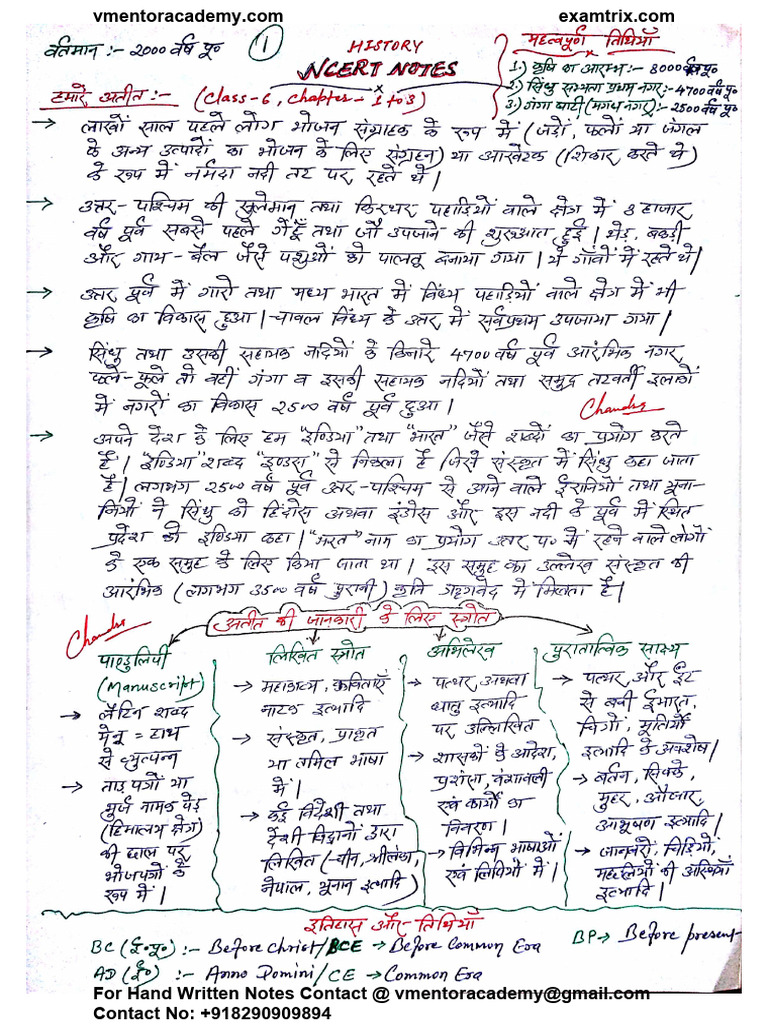 vmentoracademy.com examtrix.com
वर्तमान :- 2000 वर्ष पू०
1
HISTORY
NCERT NOTES
महत्वपूर्ण तिथियाँ
1.) कृषि का आरम्भ :- 8000 वर्ष पू०
2.) सिंधु सभ्यता प्रथम नगर :- 4700 वर्ष पू०
3.) गंगा घाटी (मगध नगर) :- 2500 वर्ष पू०
हमारे अतीत :- (Class-6, Chapter-1 to 3)
→ लाखों साल पहले लोग भोजन संग्राहक के रूप में (जड़ों, फलों या जंगल
के अन्य उत्पादों का भोजन के लिए संग्रहन) था आखेटक (शिकार करते थे)
के रूप में नर्मदा नदी तट पर रहते थे।
→ उत्तर-पश्चिम की सुलेमान तथा किरथर पहाड़ियों वाले क्षेत्र में 8 हजार
वर्ष पूर्व सबसे पहले गेहूँ तथा जौ उपजाने की शुरुआत हुई। भेड़, बकरी
और गाय-बैल जैसे पशुओं को पालतू बनाया गया। ये गाँवों में रहते थे।
→ उत्तर पूर्व में गारो तथा मध्य भारत में विंध्य पहाड़ियों वाले क्षेत्र में भी
कृषि का विकास हुआ। चावल विंध्य के उत्तर में सर्वप्रथम उपजाया गया।
→ सिंधु तथा उसकी सहायक नदियों के किनारे 4700 वर्ष पूर्व आरंभिक नगर
फले-फूले तो वहीं गंगा व इसकी सहायक नदियों तथा समुद्र तटवर्ती इलाकों
में नगरों का विकास 2500 वर्ष पूर्व हुआ।
Chandra
→ अपने देश के लिए हम "इण्डिया" तथा "भारत" जैसे शब्दों का प्रयोग करते
हैं। "इण्डिया" शब्द "इण्डस" से निकला है जिसे संस्कृत में सिंधु कहा जाता
है। लगभग 2500 वर्ष पूर्व उत्तर-पश्चिम से आने वाले ईरानियों तथा यूना-
नियों ने सिंधु को हिंदोस अथवा इंडोस और इस नदी के पूर्व में स्थित
प्रदेश को इण्डिया कहा। "भरत" नाम का प्रयोग उत्तर प० में रहने वाले लोगों
के एक समूह के लिए किया जाता था। इस समूह का उल्लेख संस्कृत की
आरंभिक (लगभग 3500 वर्ष पुरानी) कृति ऋग्वेद में मिलता है।
Chandra
अतीत की जानकारी के लिए स्त्रोत
पाण्डुलिपी
(Manuscript)
→ लैटिन शब्द
मेनू = हाथ
से व्युत्पन्न
→ ताड़ पत्रों या
भुर्ज नामक पेड़
(हिमालय क्षेत्र)
की छाल पर
भोजपत्रों के
रूप में।
लिखित स्त्रोत
→ महाकाव्य, कविताएँ
नाटक इत्यादि
→ संस्कृत, प्राकृत
या तमिल भाषा
में।
→ कई विदेशी तथा
देशी विद्वानों द्वारा
लिखित (-चीन, श्रीलंका,
नेपाल, यूनान इत्यादि)
अभिलेख
→ पत्थर, अथवा
धातु इत्यादि
पर, उल्लिखित
→ शासकों के आदेश,
प्रशंसा, वंशावली
एवं कार्यों का
विवरण।
→ विभिन्न भाषाओं
एवं लिपियों में।
पुरातात्विक साक्ष्य
→ पत्थर, और ईंट
से बनी ईमारत,
चित्रों, मूर्तियों
इत्यादि के अवशेष।
→ बर्तन, सिक्के,
मुहर, औजार,
आभूषण इत्यादि।
→ जानवरों, चिड़ियों,
मछलियों की अस्थियाँ
इत्यादि।
इतिहास और तिथियाँ
BC (ई०पू०) :- Before Christ/BCE → Before Common Era
BP → Before present
AD (ई०) :- Anno Domini/CE → Common Era
For Hand Written Notes Contact @ vmentoracademy@gmail.com
Contact No: +918290909894